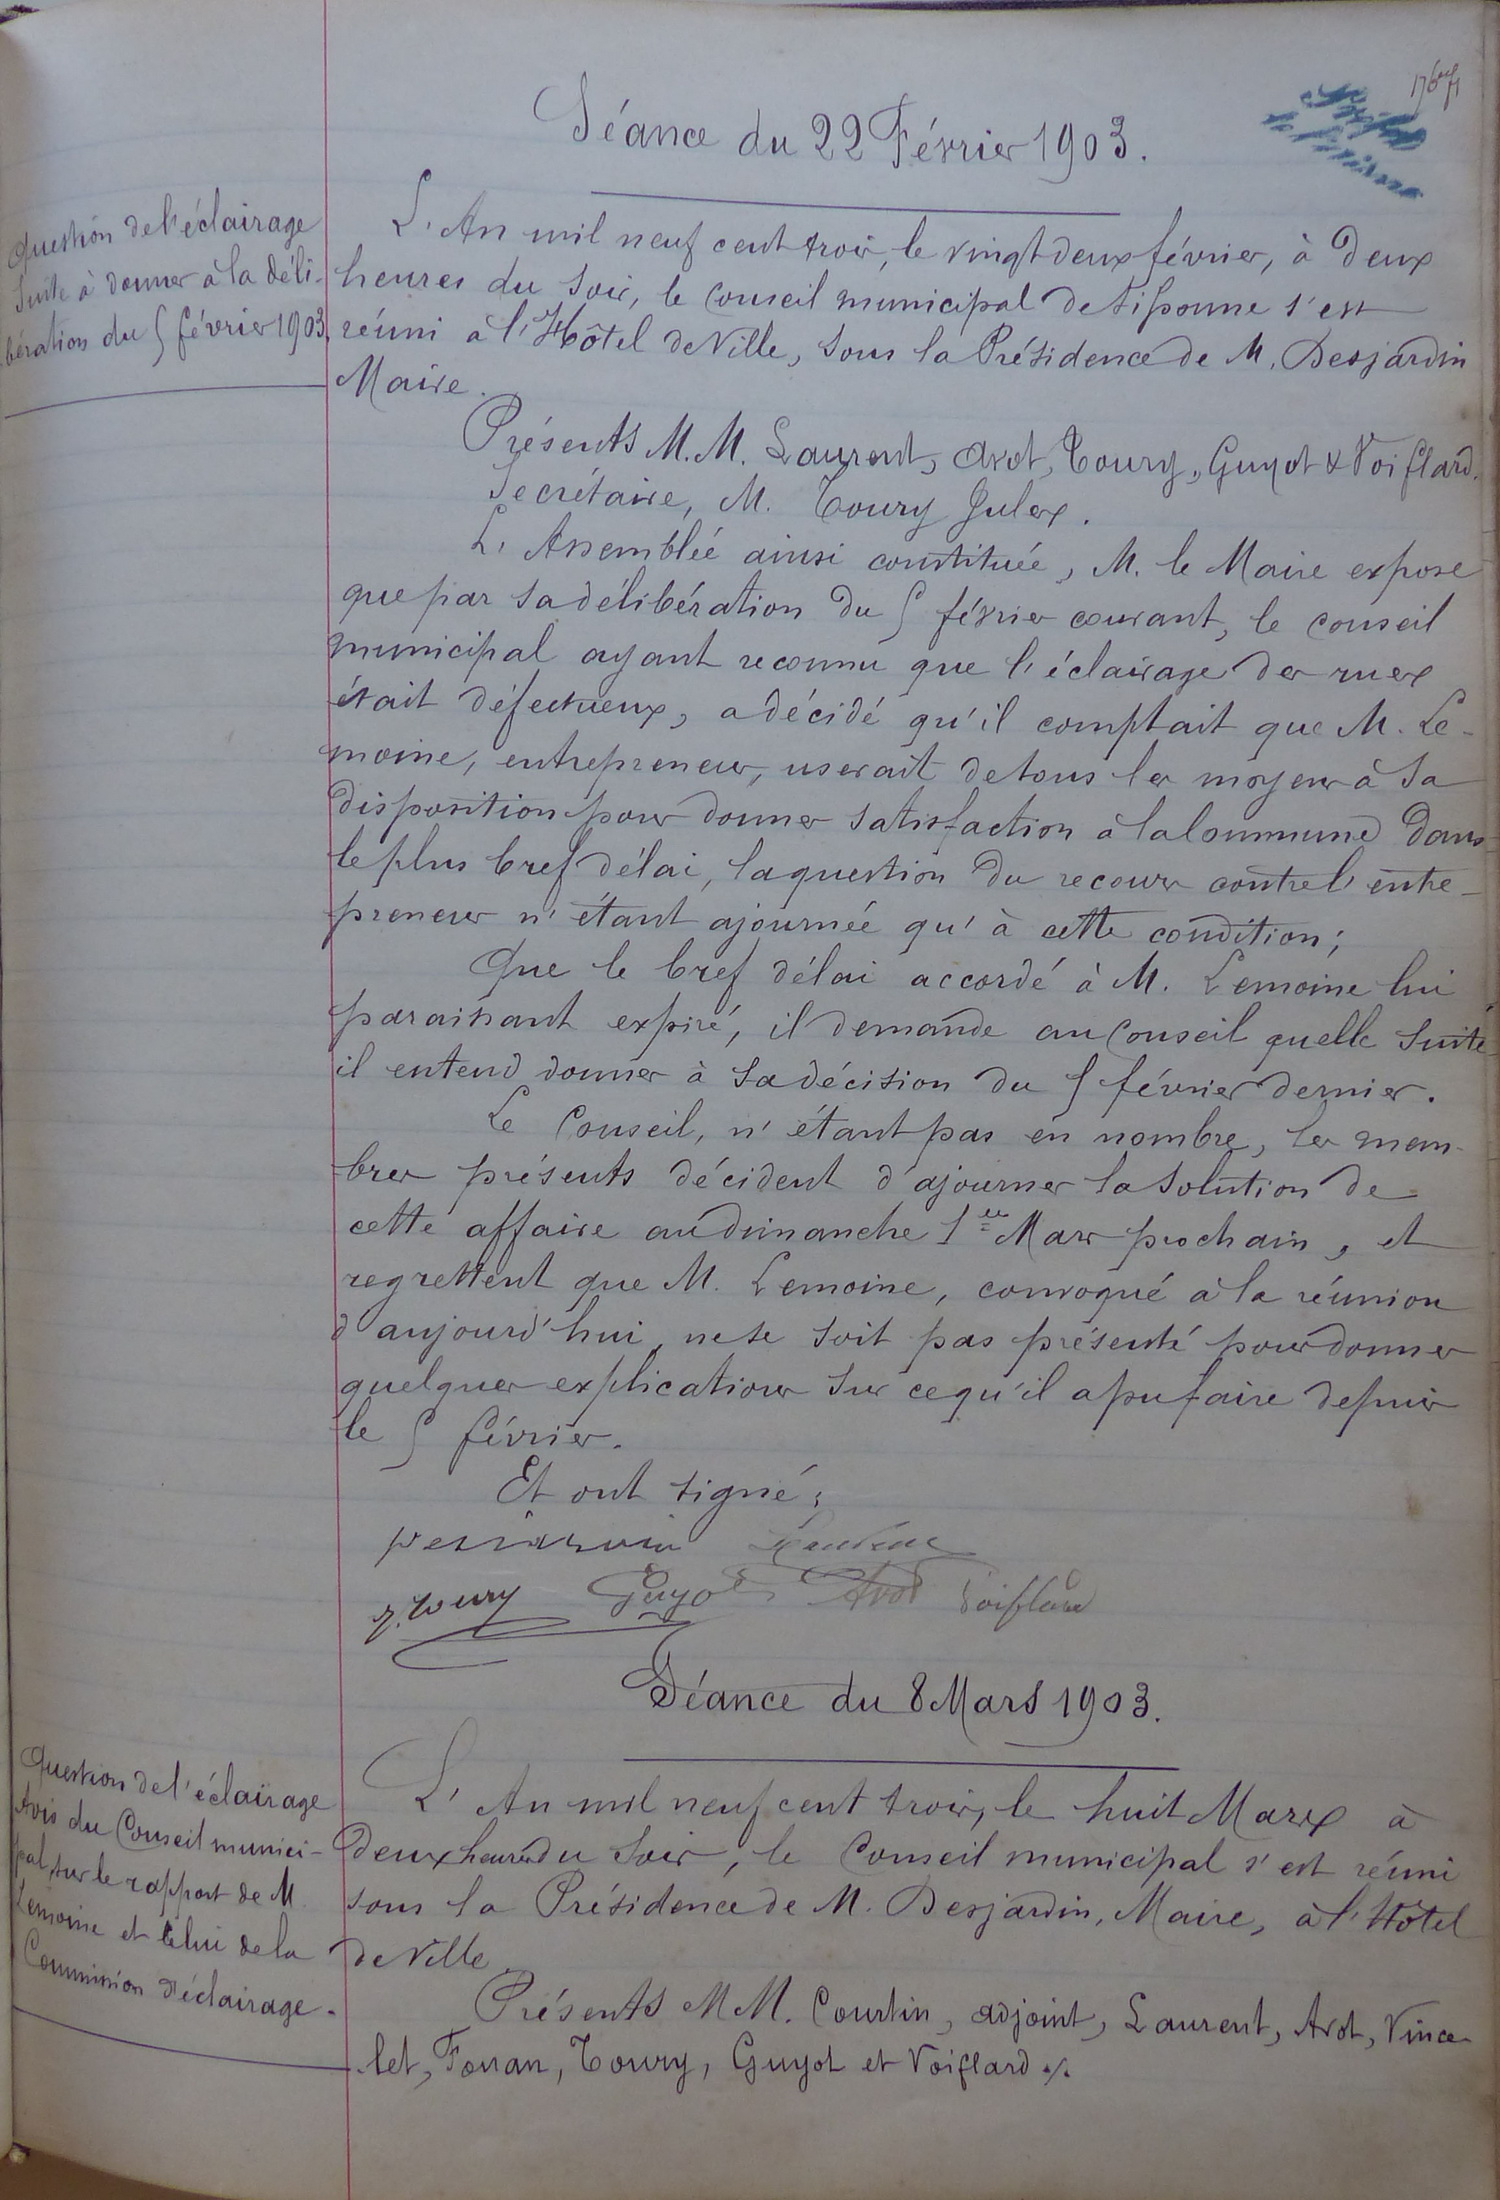 Séance du 22 Février 1903.
Question de l'éclairage
Suite à donner à la déli-
bération du 5 février 1903.
L'An mil neuf cent trois, le vingt deux février, à deux
heures du soir, le Conseil municipal de Sissonne s'est
réuni à l'Hôtel de Ville, sous la Présidence de M. Desjardin
Maire.
Présents M.M. Laurent, Avot, Toury, Guyot & Voiflard.
Secrétaire, M. Toury Jules.
L'Assemblée ainsi constituée, M. le Maire expose
que par sa délibération du 5 février courant, le conseil
municipal ayant reconnu que l'éclairage des rues
était défectueux, a décidé qu'il comptait que M. Le-
moine, entrepreneur, userait de tous les moyens à sa
disposition pour donner satisfaction à la Commune dans
le plus bref délai, la question du recours contre l'entre-
preneur n'étant ajournée qu'à cette condition;
Que le bref délai accordé à M. Lemoine lui
paraissant expiré, il demande au Conseil quelle suite
il entend donner à sa décision du 5 février dernier.
Le Conseil, n'étant pas en nombre, les mem-
bres présents décident d'ajourner la solution de
cette affaire au dimanche 1er Mars prochain, et
regrettent que M. Lemoine, convoqué à la réunion
d'aujourd'hui, ne se soit pas présenté pour donner
quelques explications sur ce qu'il a pu faire depuis
le 5 février.
Et ont signé:
J. Toury Guyot Avot Voiflard
Séance du 8 Mars 1903.
Question de l'éclairage
Avis du Conseil munici-
pal, sur le rapport de M.
Lemoine et celui de la
Commission d'éclairage.
L'An mil neuf cent trois, le huit Mars à
deux heures du soir, le Conseil municipal s'est réuni
sous la Présidence de M. Desjardin, Maire, à l'Hôtel
de Ville.
Présents M M. Courtin, adjoint, Laurent, Avot, Vince-
let, Fouan, Toury, Guyot et Voiflard ./.